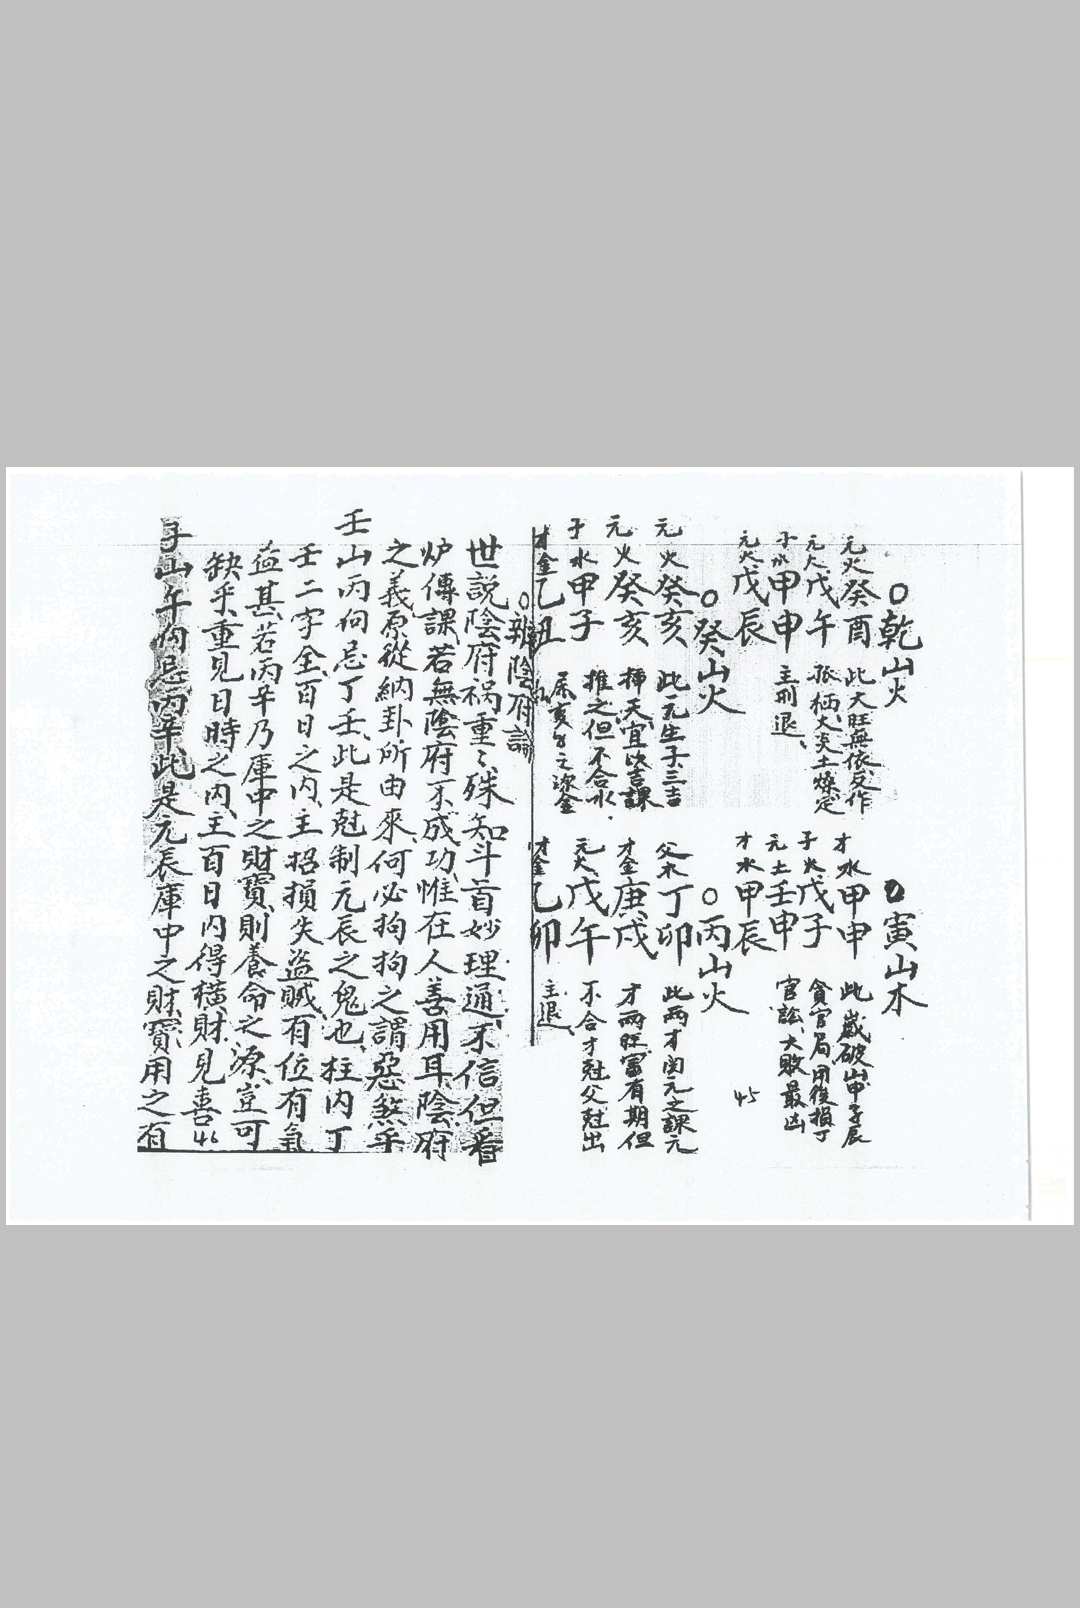 ○乾山火
元火癸酉
元火戊午
子水甲申
元火戊辰
此大旺無依反作
孤栖火炎土燥定
主刑退、
○寅山木
才水甲申
子火戊子
元土壬申
才水甲辰
此歲破山甲子辰
貪官局用後損丁
官訟、大敗最凶
45
○癸山火
元火癸亥
元火癸亥
子水甲子
才金乙丑
此元生子三吉
推之但不合水、
○丙山火
父木丁卯
才金庚戌
元火戊午
才金乙卯
此兩才肉元之課元
才兩旺富有期但
不合才尅父尅出
主退、
○辨陰府論
世説陰府禍重〻殊知斗首妙理通、不信但看
炉傳課、若無陰府不成功、惟在人善用耳、陰府
之義原從納卦所由來、何必拘拘之謂惡煞乎
壬山丙向忌丁壬、此是尅制元辰之鬼也、柱内丁
壬二字全、百日之内、主招損失盜賊、有位有氣
益甚、若丙辛乃庫中之財寶、則養命之源、豈可
缺乎、重見日時之内、主百日内得橫財、見喜
46
子山午向忌丙辛、此是元辰庫中之財寶、用之有